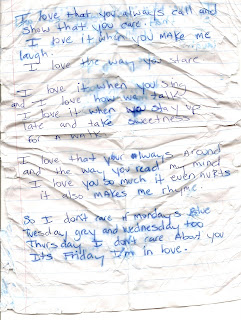 I love that you always call and
show that you care.
I love it when you make me
laugh.
I love the way you stare
I love it when you sing
and I love how we talk
I love it when you stay up
late and take sweetness
for a
I love that your always around
and the way you read my mind
I love you so much it even hurts
it also makes me rhyme.
So I don't care if mondays blue
Tuesday grey and wednesday too
Thursday I don't care about you
Its Friday I'm in love.